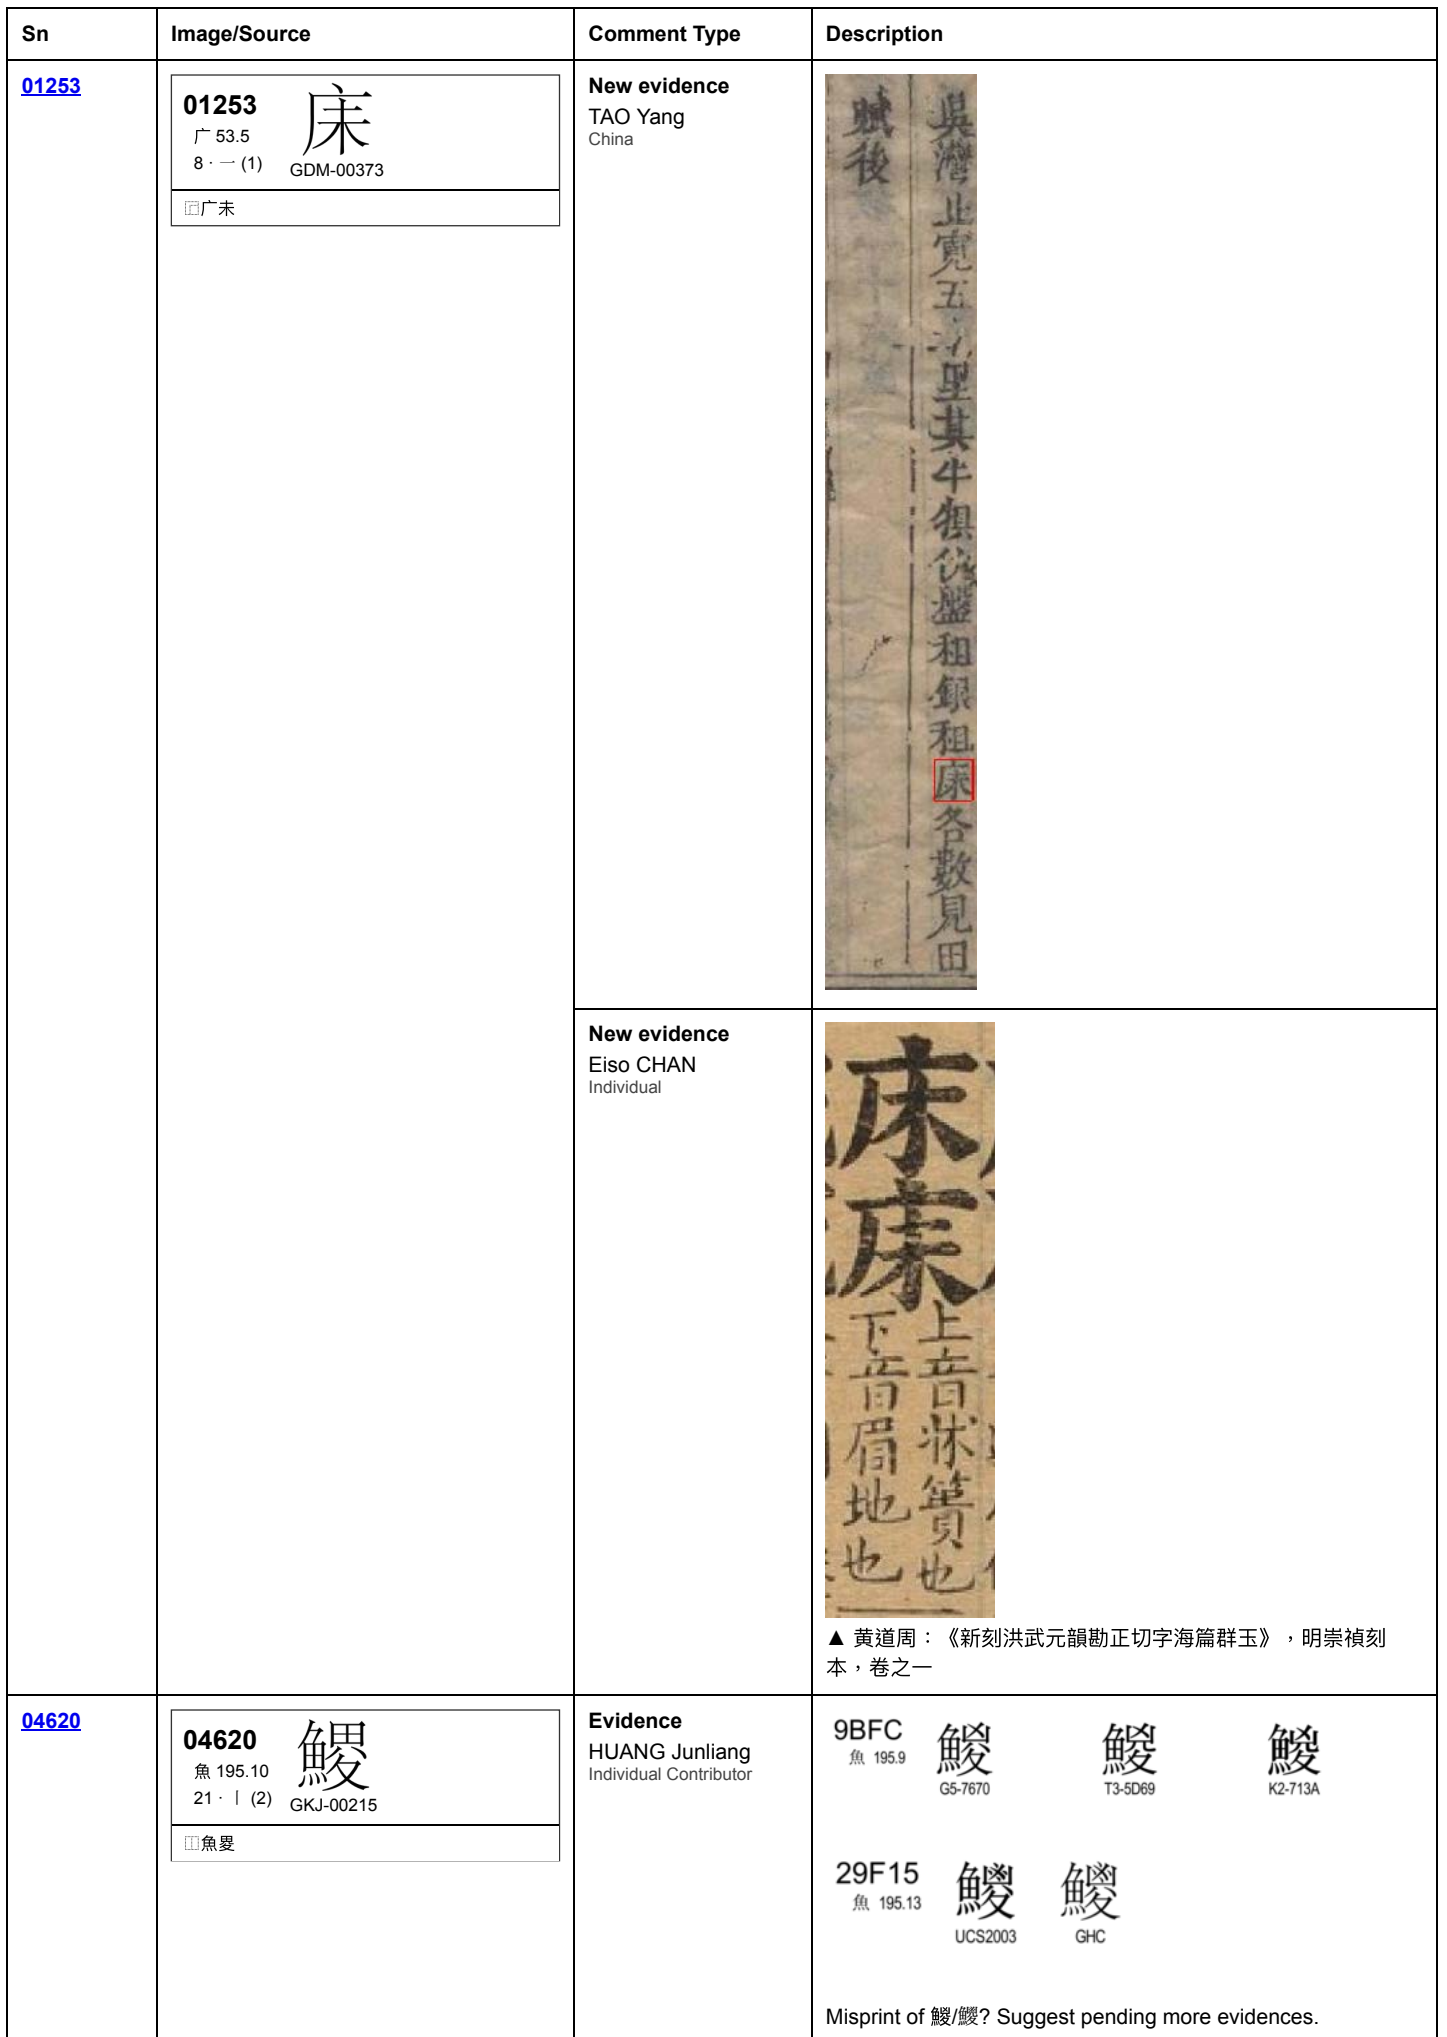 Sn Image/Source Comment Type Description
01253
01253
广 53.5
8 · 一 (1)
GDM-00373
⿸广未
New evidence
TAO Yang
China
里其牛犋伙盤租銀租𢇲各數見田
賦後
New evidence
Eiso CHAN
Individual
上音牀簀也
下音眉地也
▲ 黄道周：《新刻洪武元韻勘正切字海篇群玉》，明崇禎刻
本，卷之一
04620
04620
魚 195.10
21 · 丨 (2)
GKJ-00215
⿰魚㚆
Evidence
HUANG Junliang
Individual Contributor
9BFC
魚 195.9
鯼 鯼 鯼
G5-7670 T3-5D69 K2-713A
29F15
魚 195.13
𩼕 𩼕
UCS2003 GHC
Misprint of 鯼/𩼕? Suggest pending more evidences.